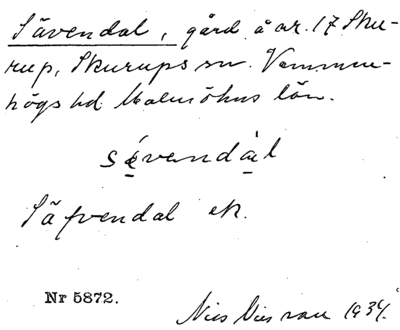 Sävendal, gård å nr. 17 Sku-
rup, Skurups sn. Vemmen-
högs hd. Malmöhus län.
sǽvendàl
Säfvendal ek.
Nr 5872.
1934.